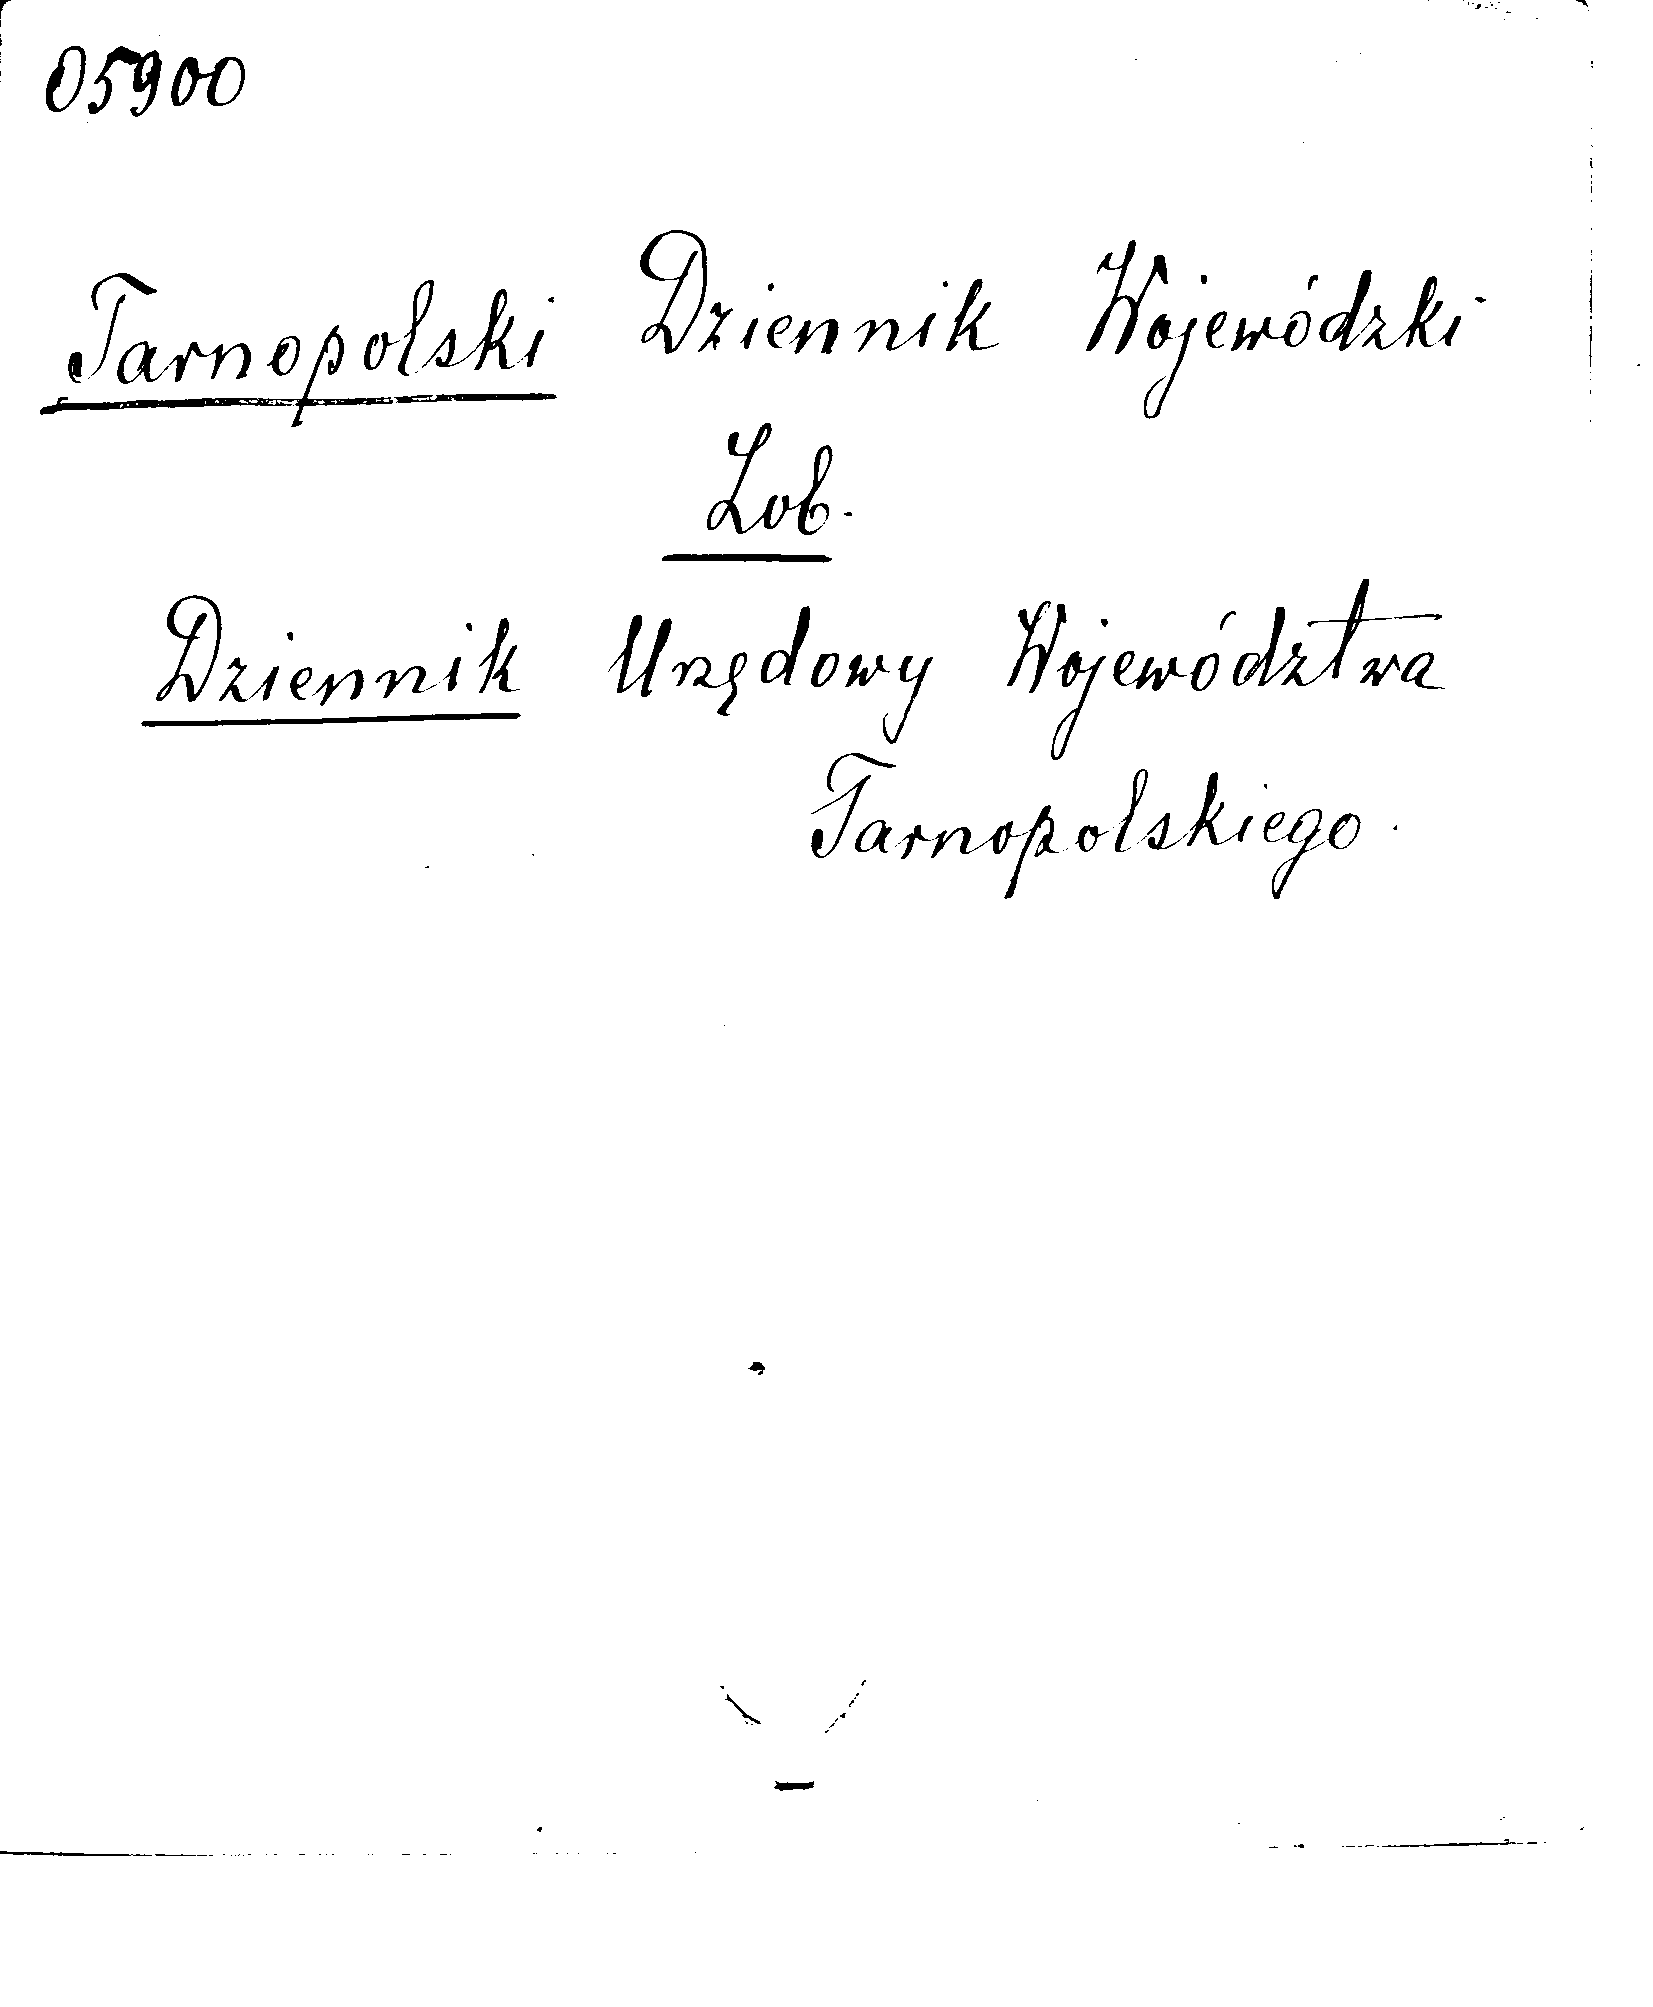 05900
Tarnopolski Dziennik Wojewódzki
Zob.
Dziennik Urzędowy Województwa
Tarnopolskiego.